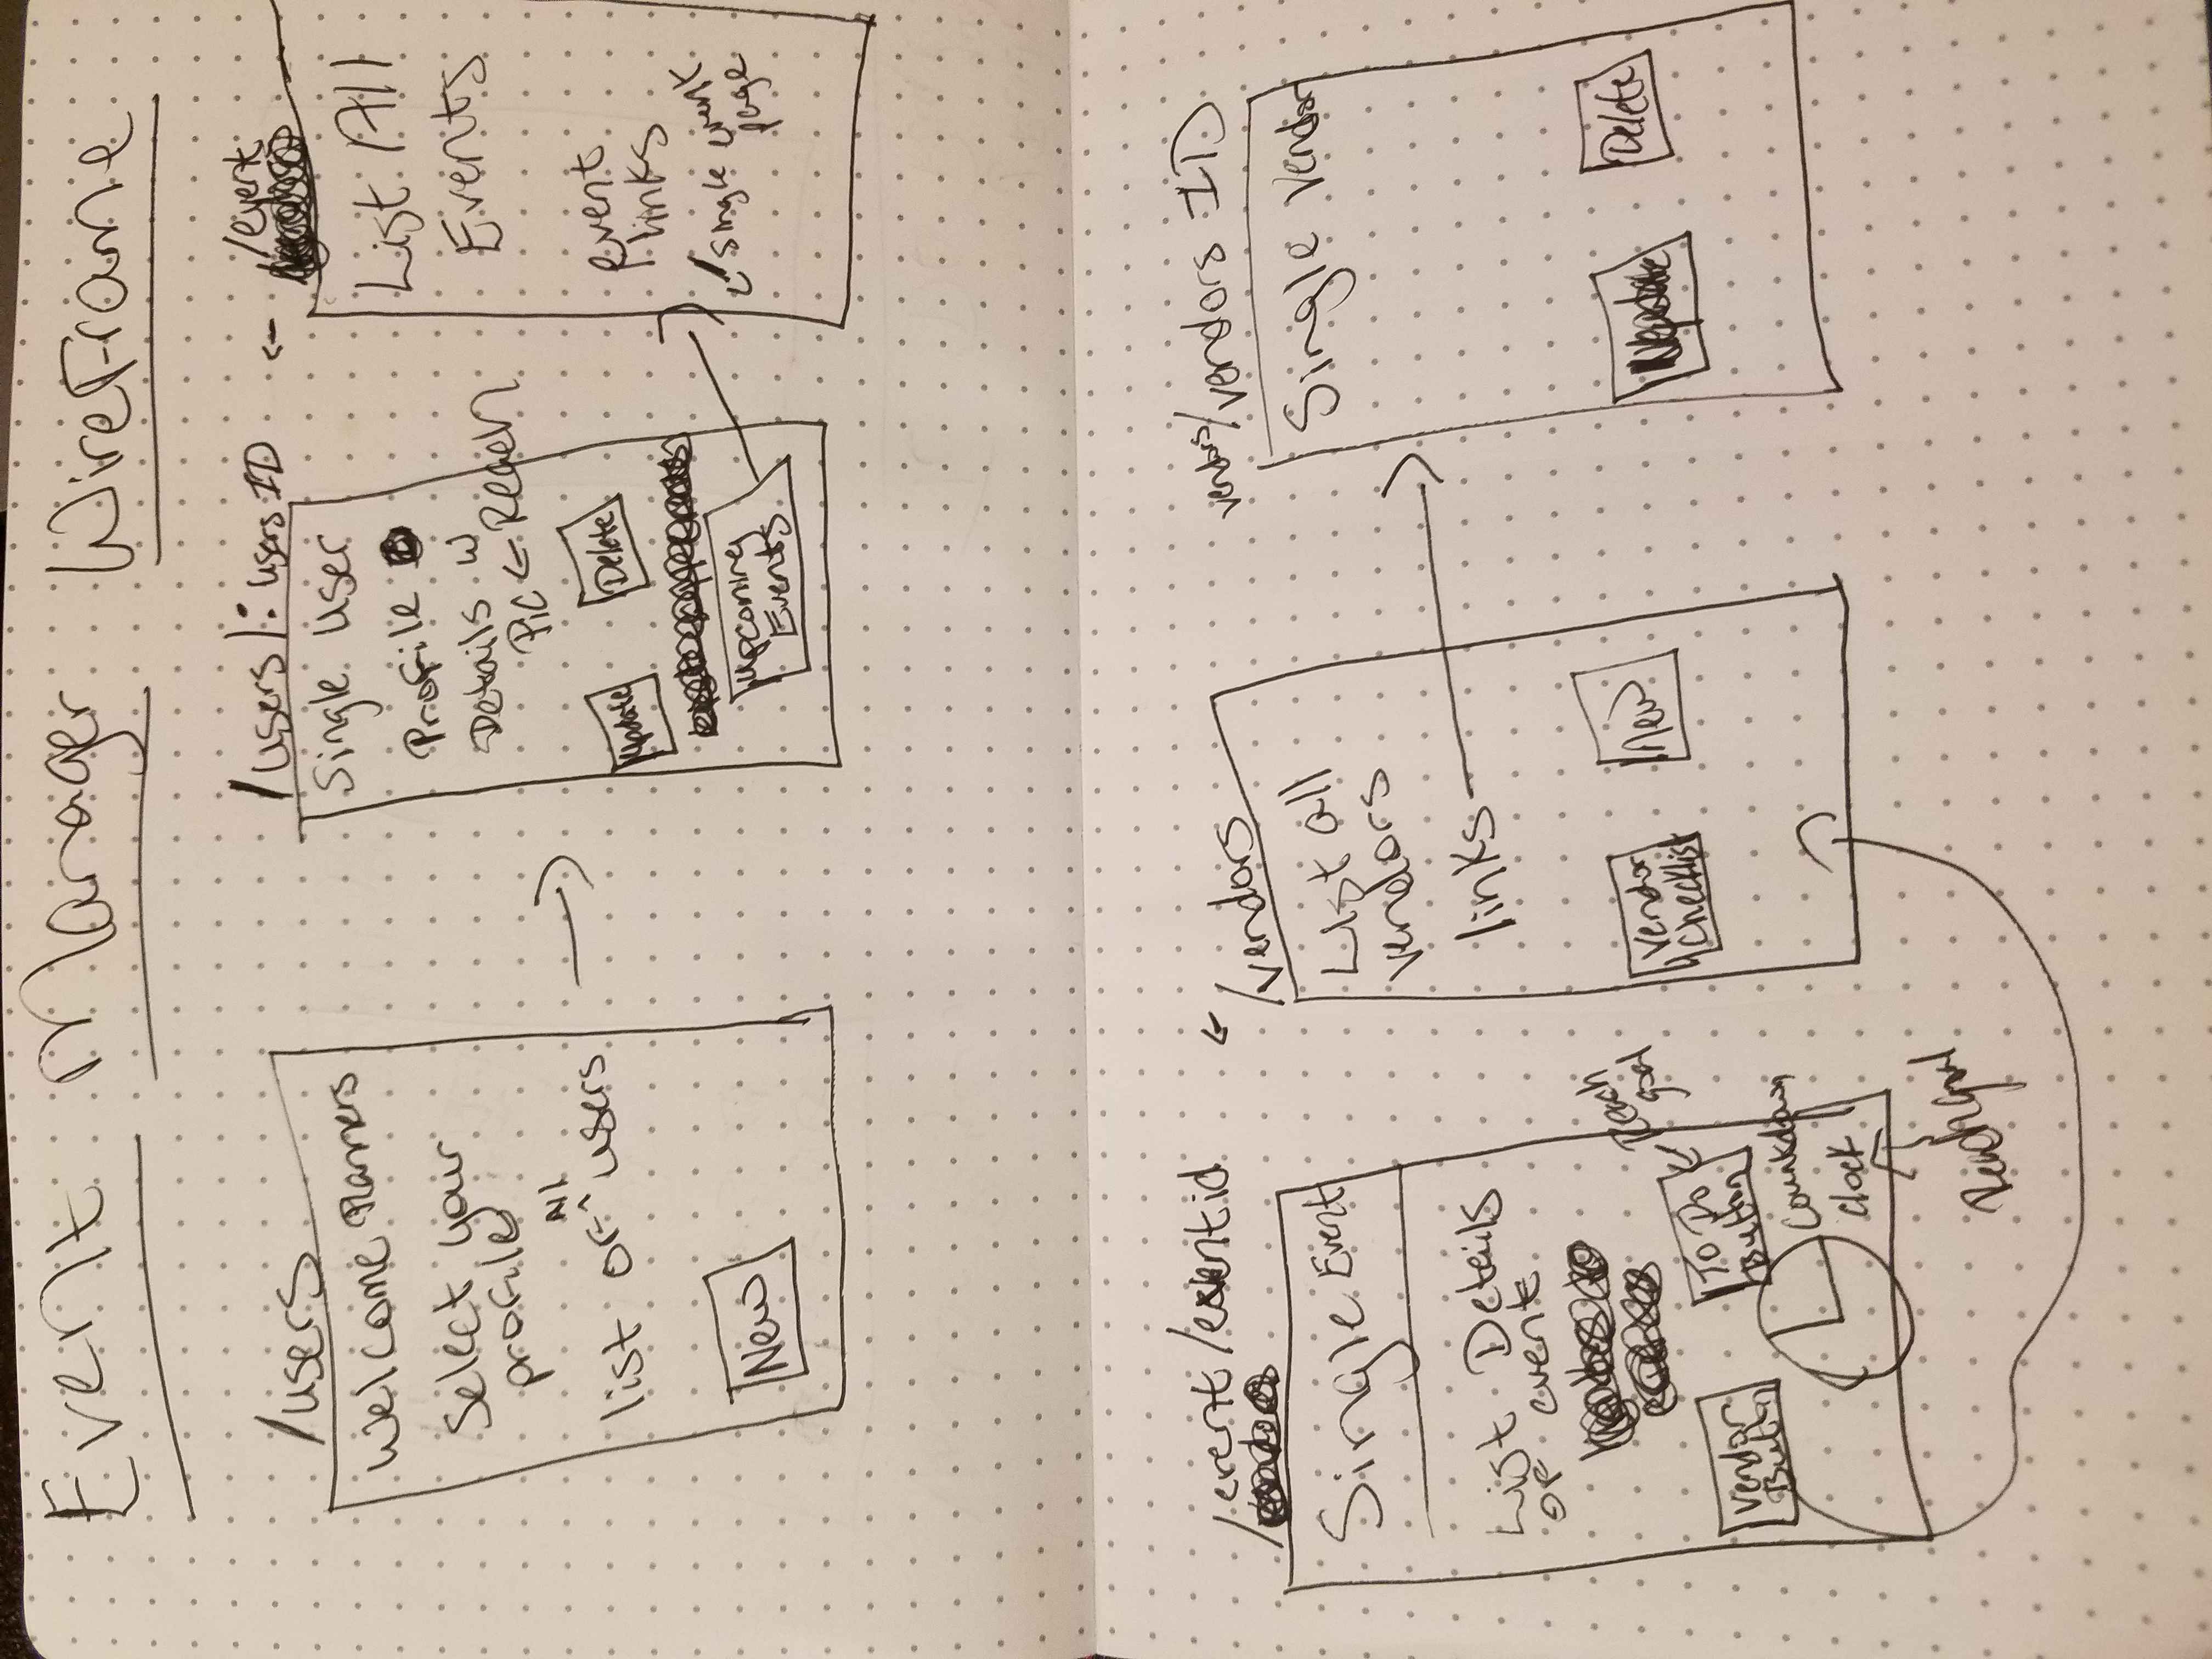 Event Manager WireFrame
/users
Welcome Planners
Select your
profile
All
list of ^ users
New
/users/: users ID
Single User
Profile
Details w
Pic ← Reach
Update
Delete
Upcoming
Events
← /event
List All
Events
event
links
↙ Single event
page
/event/eventid
Single Event
List Details
of event
Reach
goal
Vendor
Button
To Do
Button
Countdown
Clock
Reach goal
← /vendors
List all
vendors
links
Vendor
Checklist
New
vendors/vendors ID
Single Vendor
Update
Delete